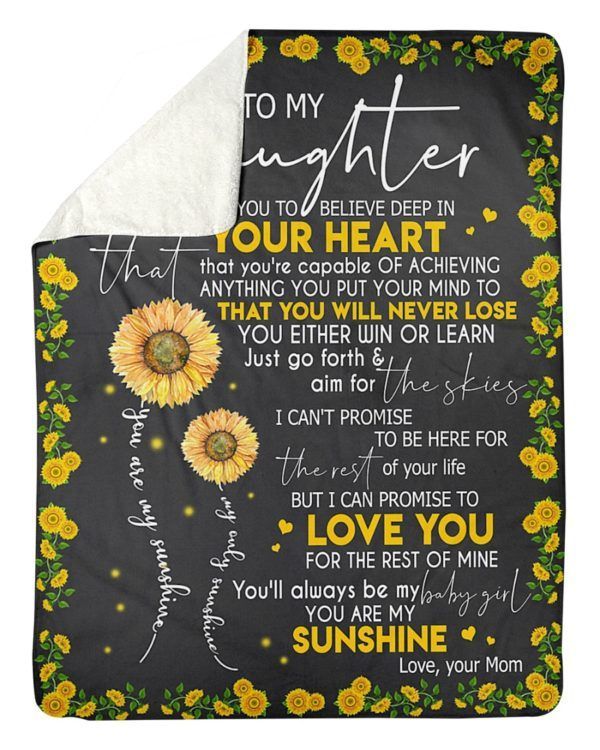 TO MY
ughter
YOU TO BELIEVE DEEP IN
that YOUR HEART
that you're capable OF ACHIEVING
ANYTHING YOU PUT YOUR MIND TO
THAT YOU WILL NEVER LOSE
YOU EITHER WIN OR LEARN
Just go forth &
aim for the skies
I CAN'T PROMISE
TO BE HERE FOR
the rest of your life
BUT I CAN PROMISE TO
LOVE YOU
FOR THE REST OF MINE
You'll always be my baby girl
YOU ARE MY
SUNSHINE
Love, your Mom
you are my sunshine
my only sunshine